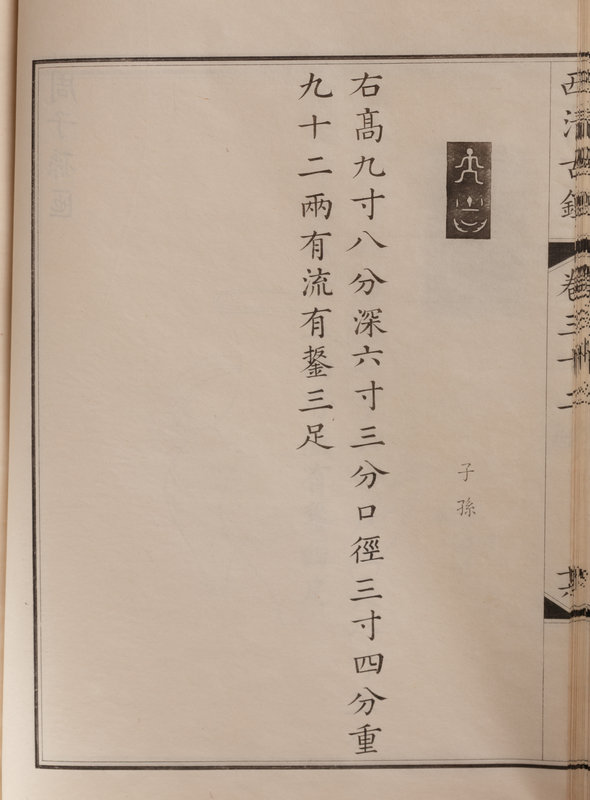 西清古鑑 卷三十二
子孫
右高九寸八分深六寸三分口徑三寸四分重
九十二兩有流有鋬三足